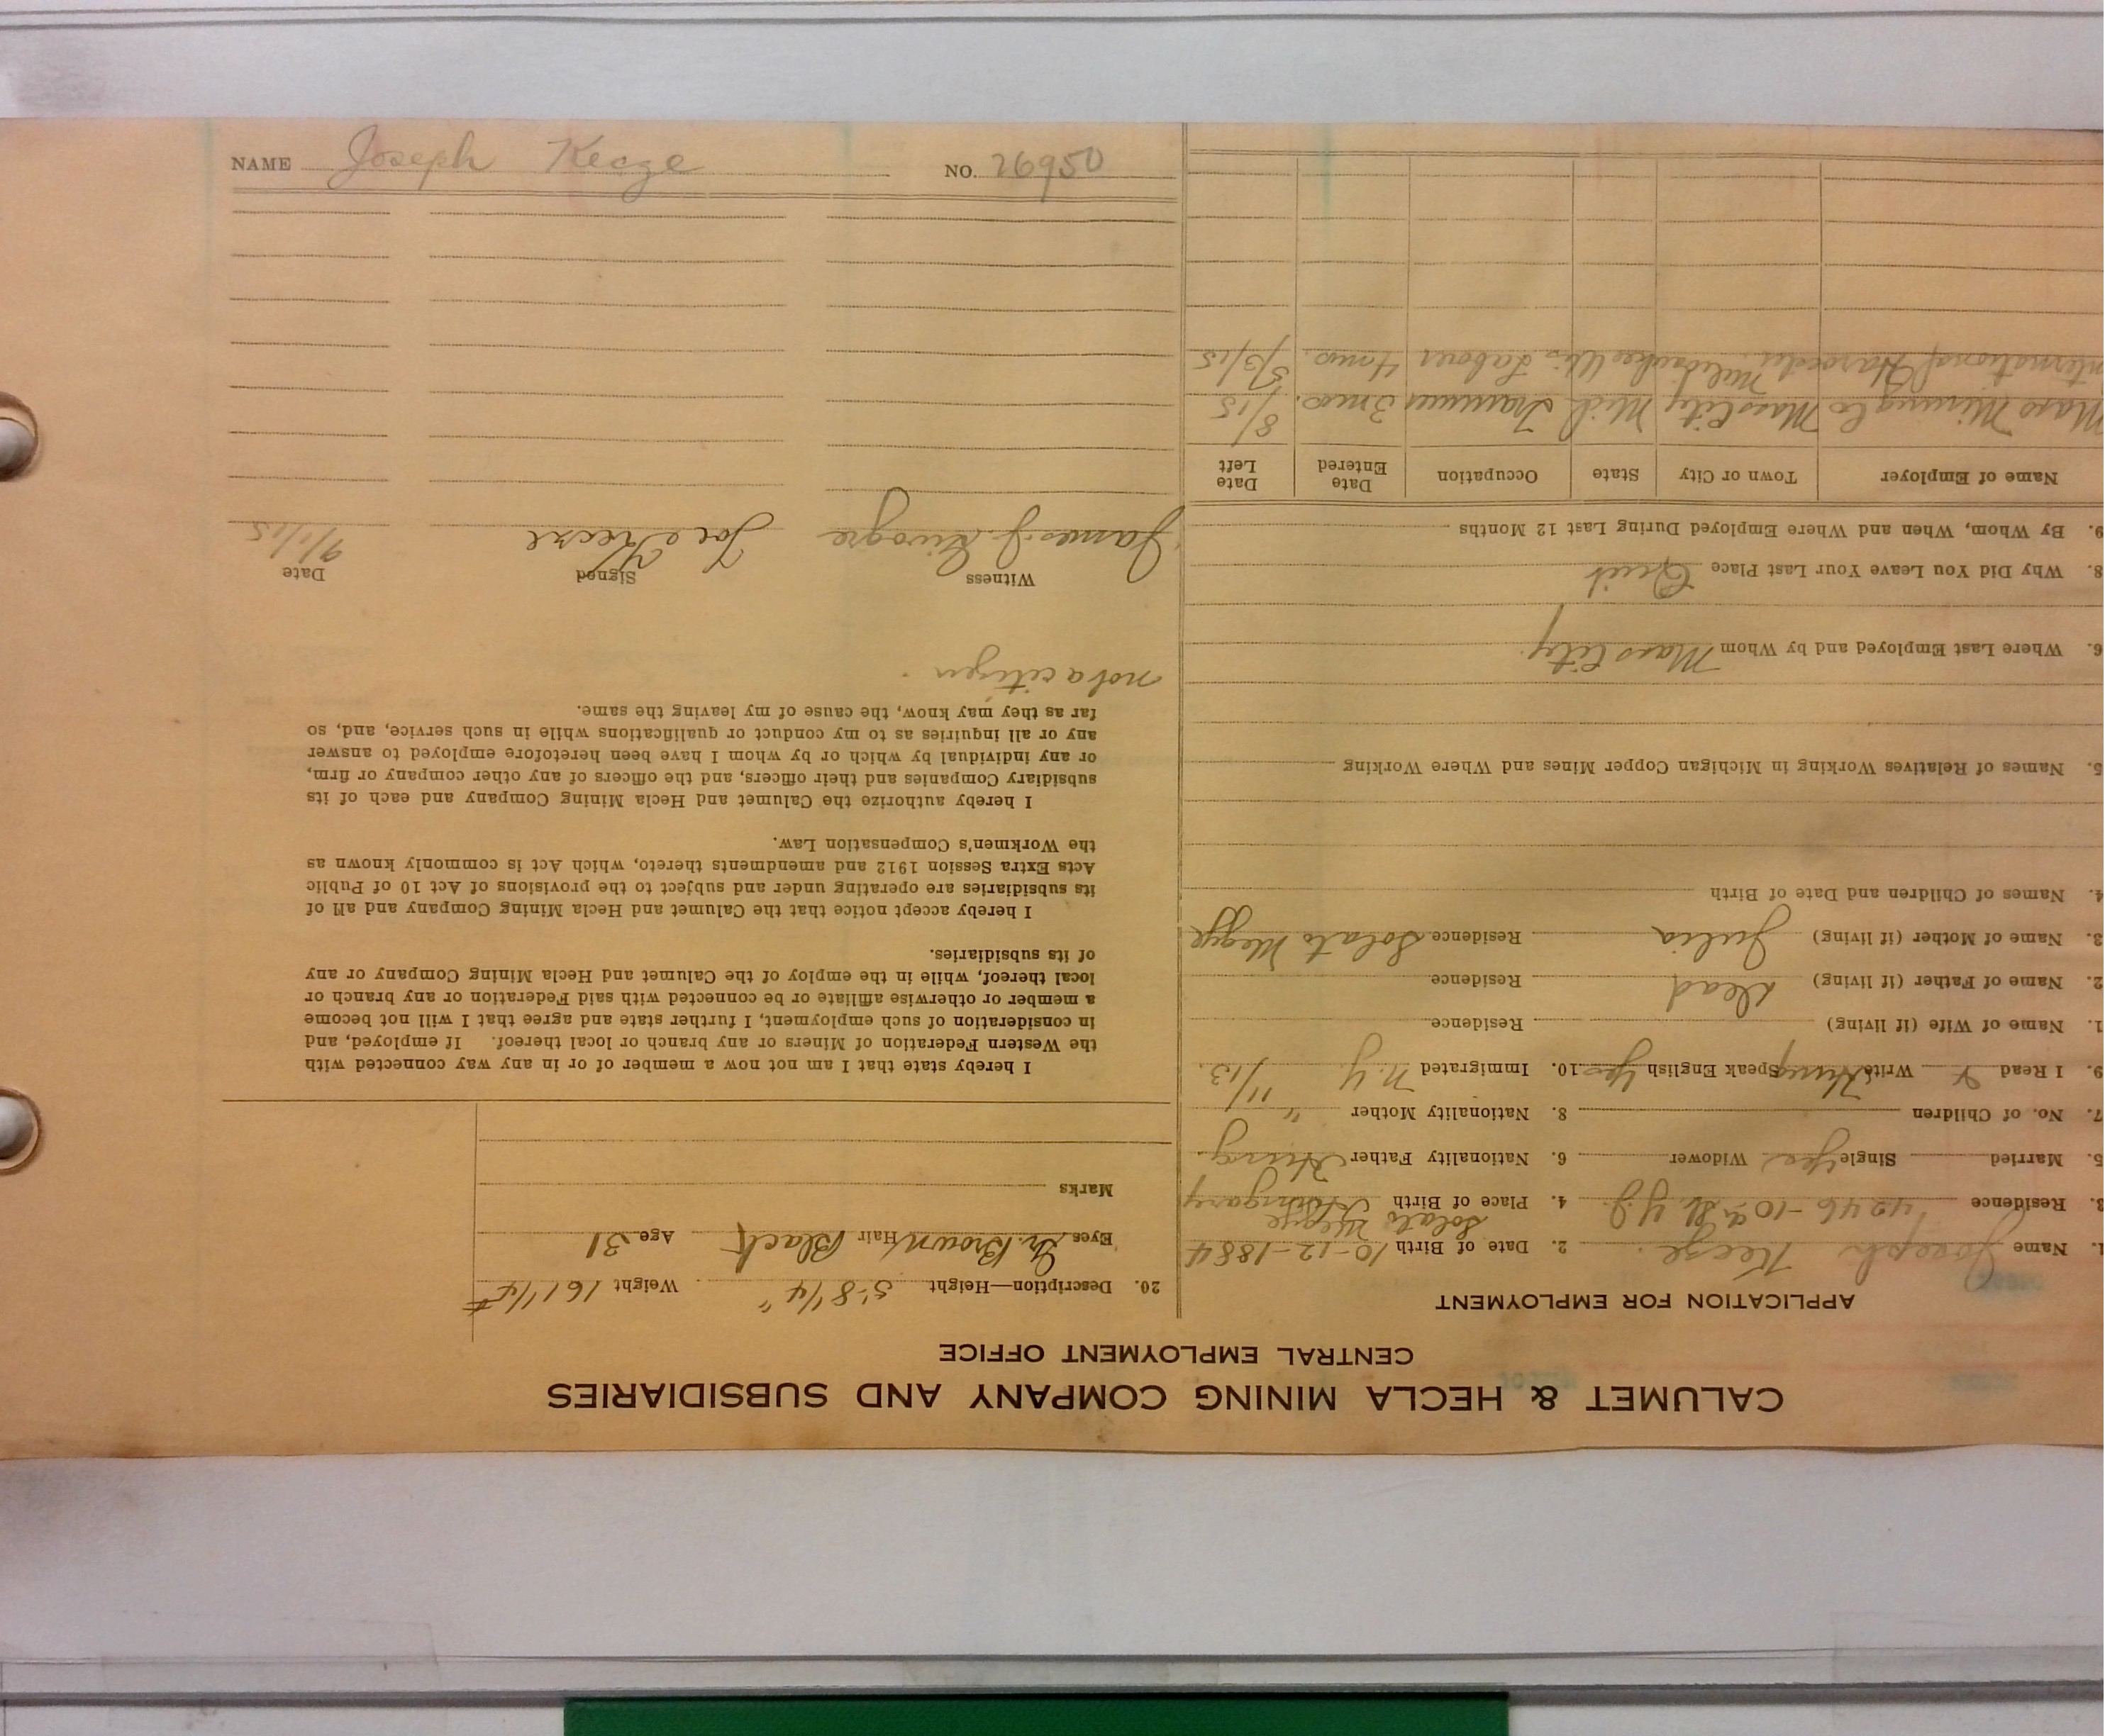 CALUMET & HECLA MINING COMPANY AND SUBSIDIARIES
CENTRAL EMPLOYMENT OFFICE
APPLICATION FOR EMPLOYMENT
1. Name Joseph Kecze 2. Date of Birth 10-12-1884
Szolats Megye
3. Residence 4246-10th St Y.J. 4. Place of Birth Hungary
5. Married Single Yes Widower 6. Nationality Father Hung.
7. No. of Children 8. Nationality Mother "
9. I Read & Write Hung Speak English Yes 10. Immigrated N.Y. 11/13.
1. Name of Wife (if living) Residence
2. Name of Father (if living) Dead Residence
3. Name of Mother (if living) Julia Residence Solats Megye
4. Names of Children and Date of Birth
5. Names of Relatives Working in Michigan Copper Mines and Where Working
6. Where Last Employed and by Whom Mass City.
8. Why Did You Leave Your Last Place Quit
9. By Whom, When and Where Employed During Last 12 Months
Name of Employer Town or City State Occupation Date Entered Date Left
Mass Mining Co Mass City Mich Trammer 3 mos. 8/15
International Harvester Milwaukee Wis. Labour 4 mos. 5/3/15
20. Description—Height 5'-8 1/4" Weight 161 1/4 #
Eyes Dr. Brown Hair Black Age 31
Marks
I hereby state that I am not now a member of or in any way connected with
the Western Federation of Miners or any branch or local thereof. If employed, and
in consideration of such employment, I further state and agree that I will not become
a member or otherwise affiliate or be connected with said Federation or any branch or
local thereof, while in the employ of the Calumet and Hecla Mining Company or any
of its subsidiaries.
I hereby accept notice that the Calumet and Hecla Mining Company and all of
its subsidiaries are operating under and subject to the provisions of Act 10 of Public
Acts Extra Session 1912 and amendments thereto, which Act is commonly known as
the Workmen's Compensation Law.
I hereby authorize the Calumet and Hecla Mining Company and each of its
subsidiary Companies and their officers, and the officers of any other company or firm,
or any individual by which or by whom I have been heretofore employed to answer
any or all inquiries as to my conduct or qualifications while in such service, and, so
far as they may know, the cause of my leaving the same.
not a citizen.
Witness Signed Date
James J. Joe Kecze 9/1/15
NAME Joseph Kecze NO. 26950